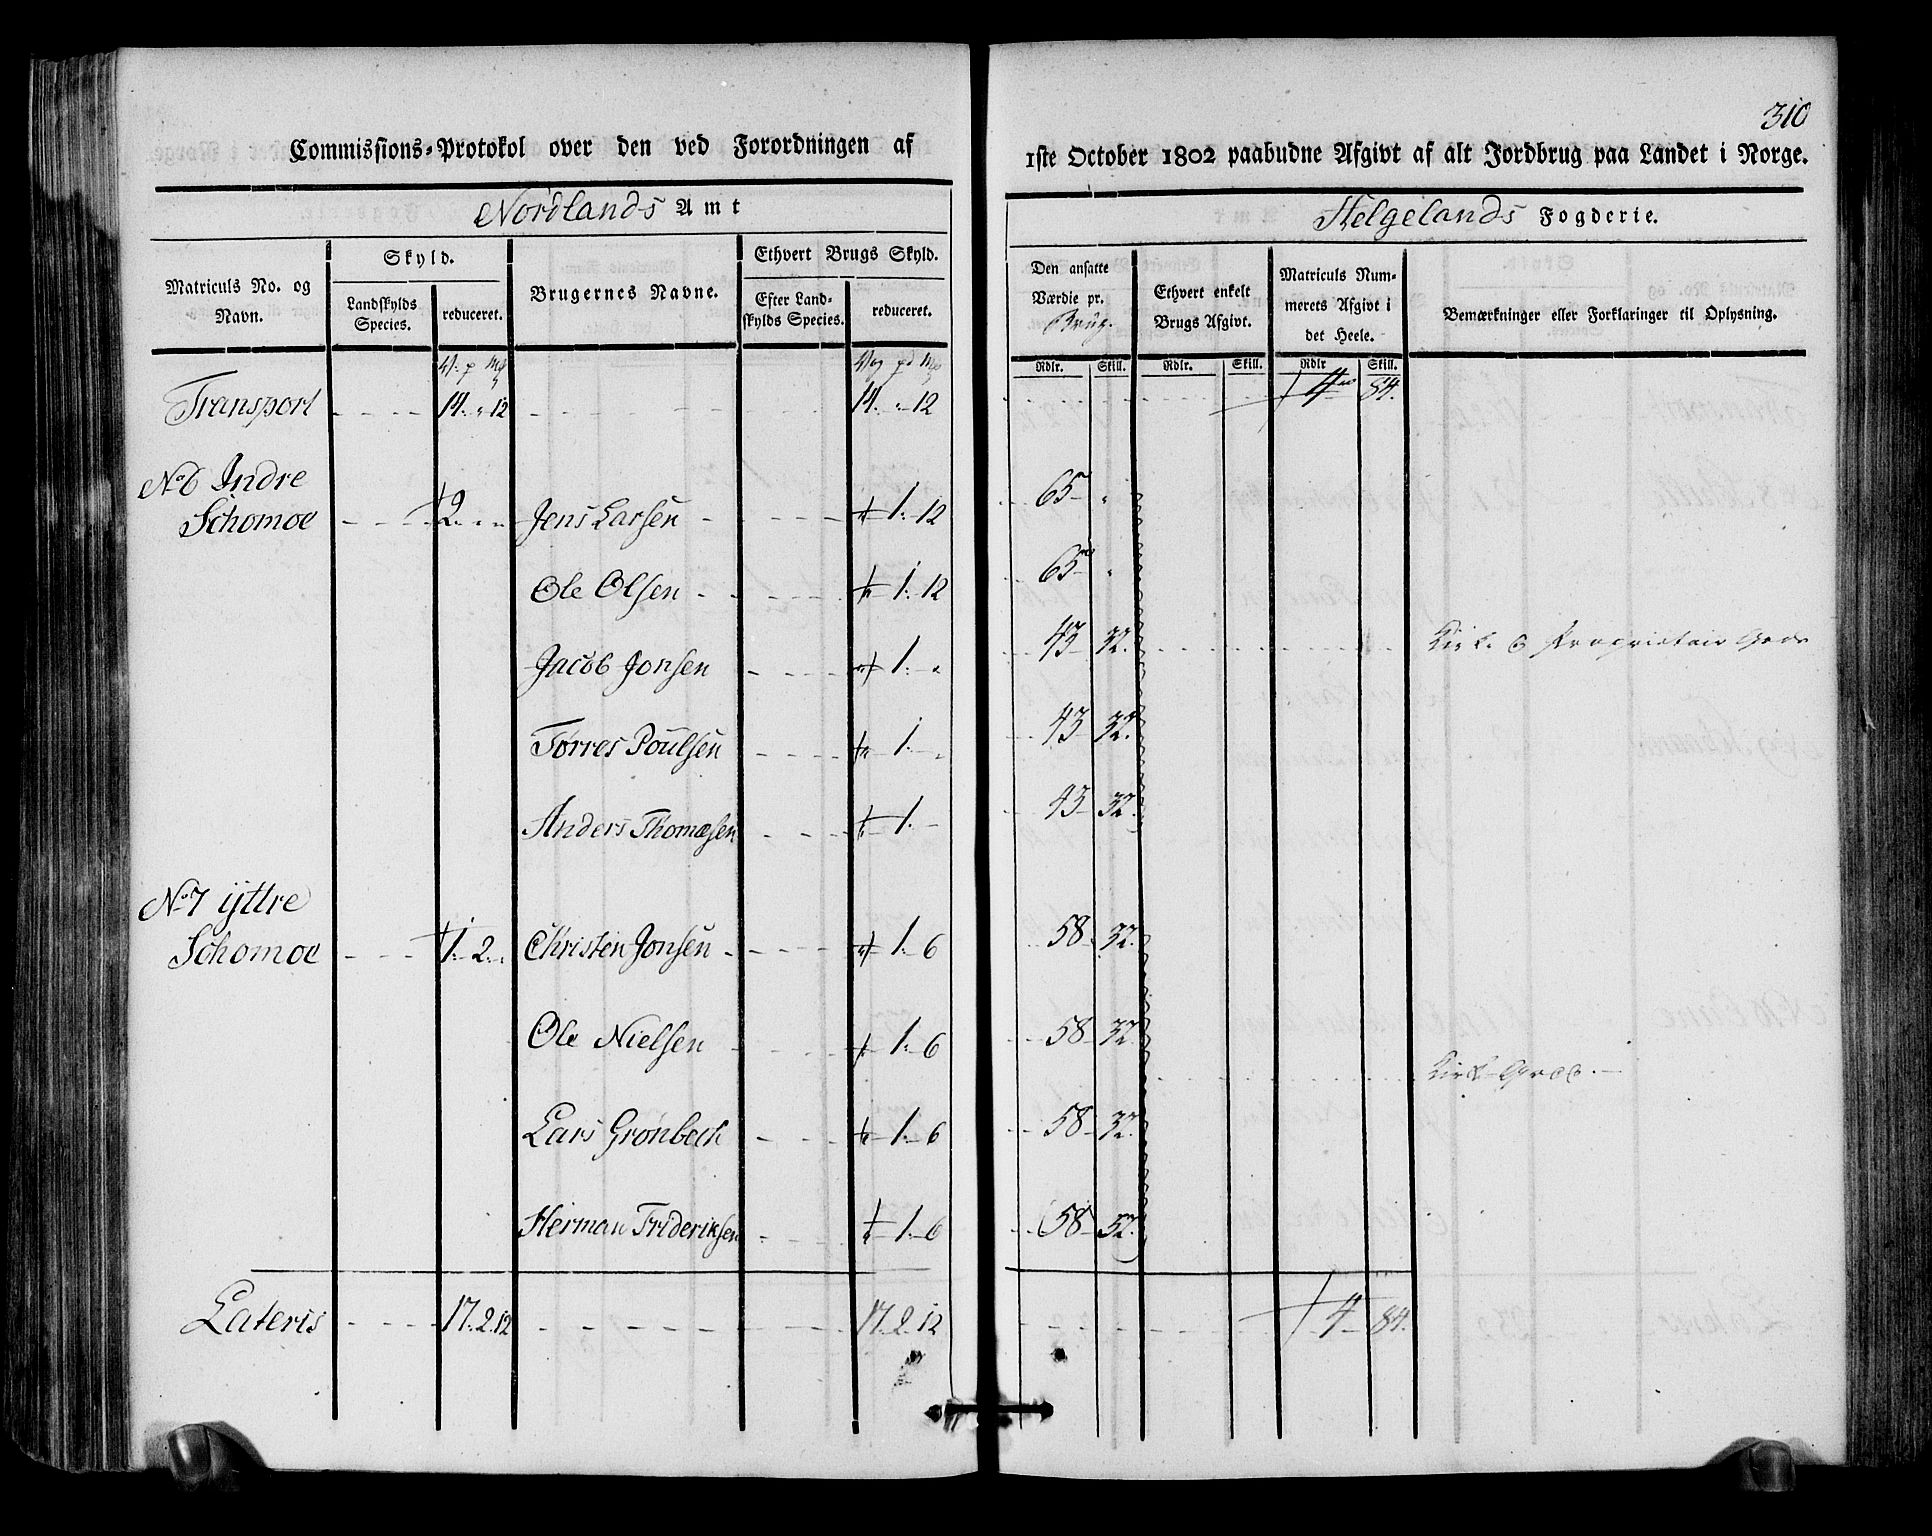 310
Commissions-Protokol over den ved Forordningen af
1ste October 1802 paabudne Afgivt af alt Jordbrug paa Landet i Norge.
Nordlands Amt
Helgelands Fogderie.
Matriculs No. og Navn.
Skyld.
Landskylds Species.
reduceret.
Brugernes Navne.
Ethvert Brugs Skyld.
Efter Landskylds Species.
reduceret.
Den ansatte Værdie pr. Brug.
Ethvert enkelt Brugs Afgivt.
Matriculs Nummerets Afgivt i det Heele.
Bemærkninger eller Forklaringer til Oplysning.
Rdlr. Skill. Rdlr. Skill. Rdlr Skill.
Transport 14. " 12 14. " 12 4 84.
No 6 Indre
Schomoe 2. " " Jens Larsen 1. 12 65 "
Ole Olsen 1. 12 65 "
Jacob Jonsen 1. " 43 32. Kirke & Proprietair Gods
Torres Poulsen 1. " 43 32.
Anders Thomæsen 1. - 43 32.
No 7 ijttre
Schomoe 1. 2. " Christen Jonsen 1. 6 58 32.
Ole Nielsen 1. 6 58 32
Kirke Gods.
Lars Grønbech 1. 6 58 32.
Herman Frideriksen 1. 6 58 32.
Lateris 17. 2. 12 17. 2. 12 4 84.